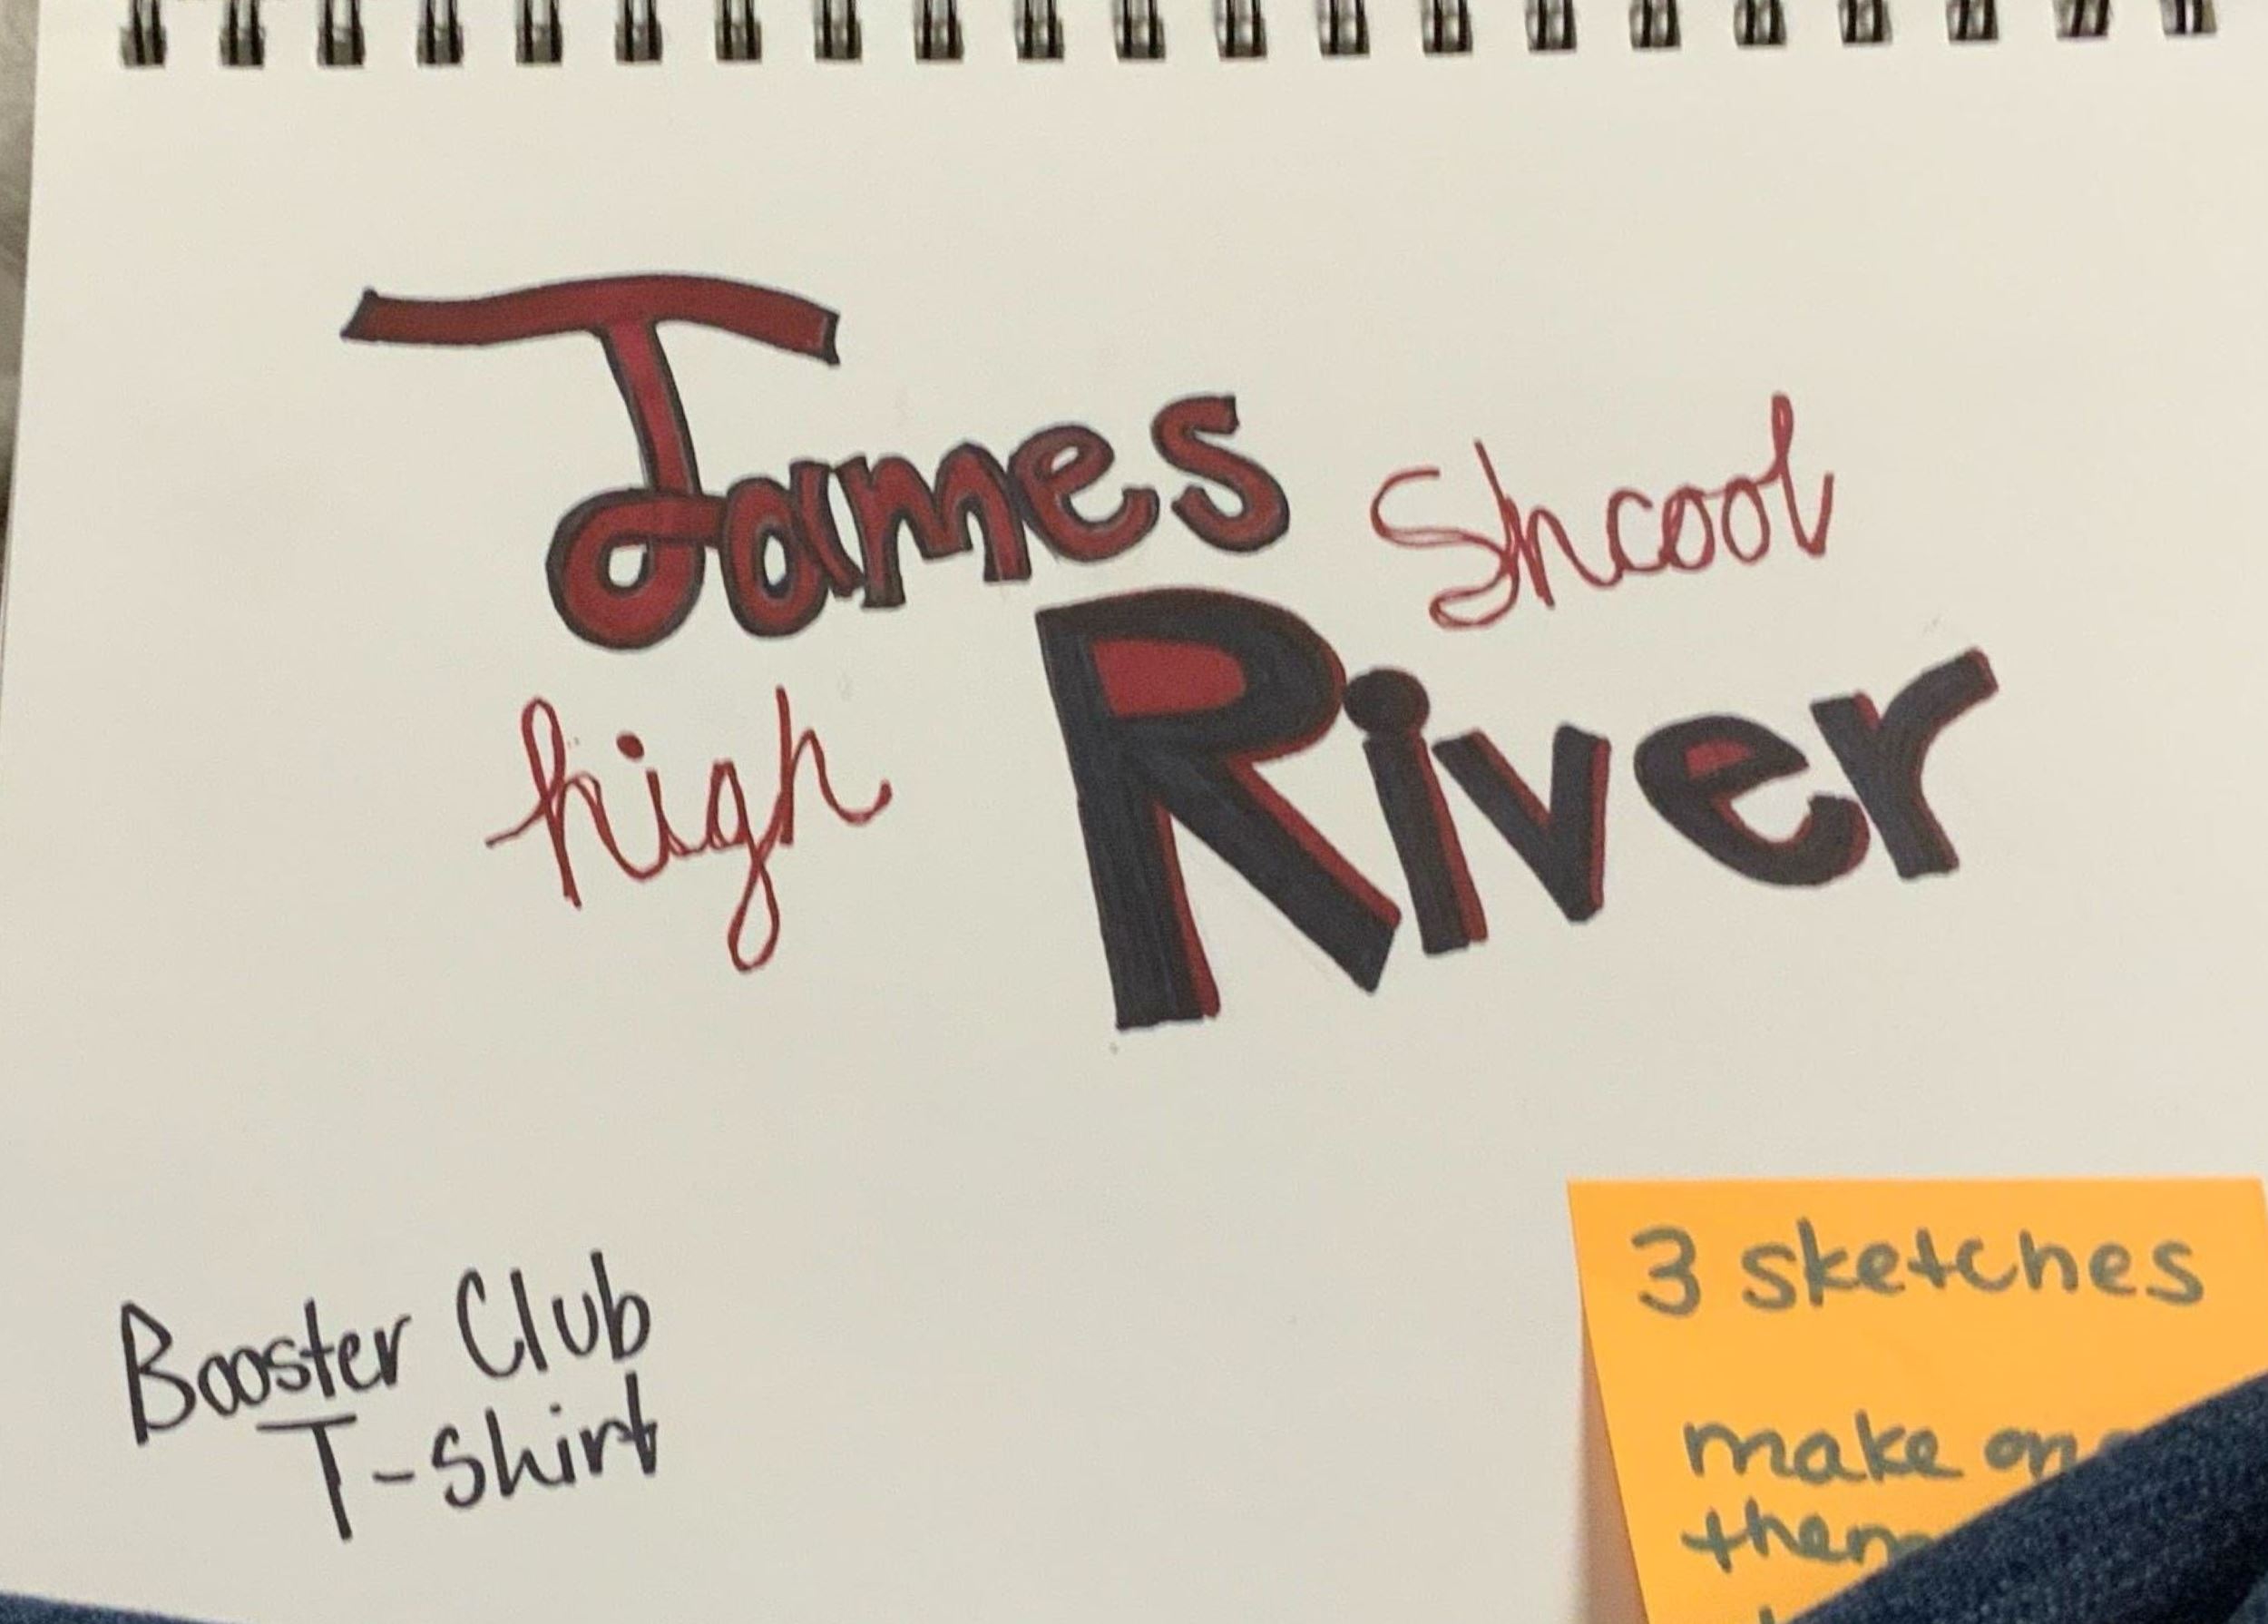 James
Shcool
high
River
Booster Club
T-Shirt
3 sketches
make